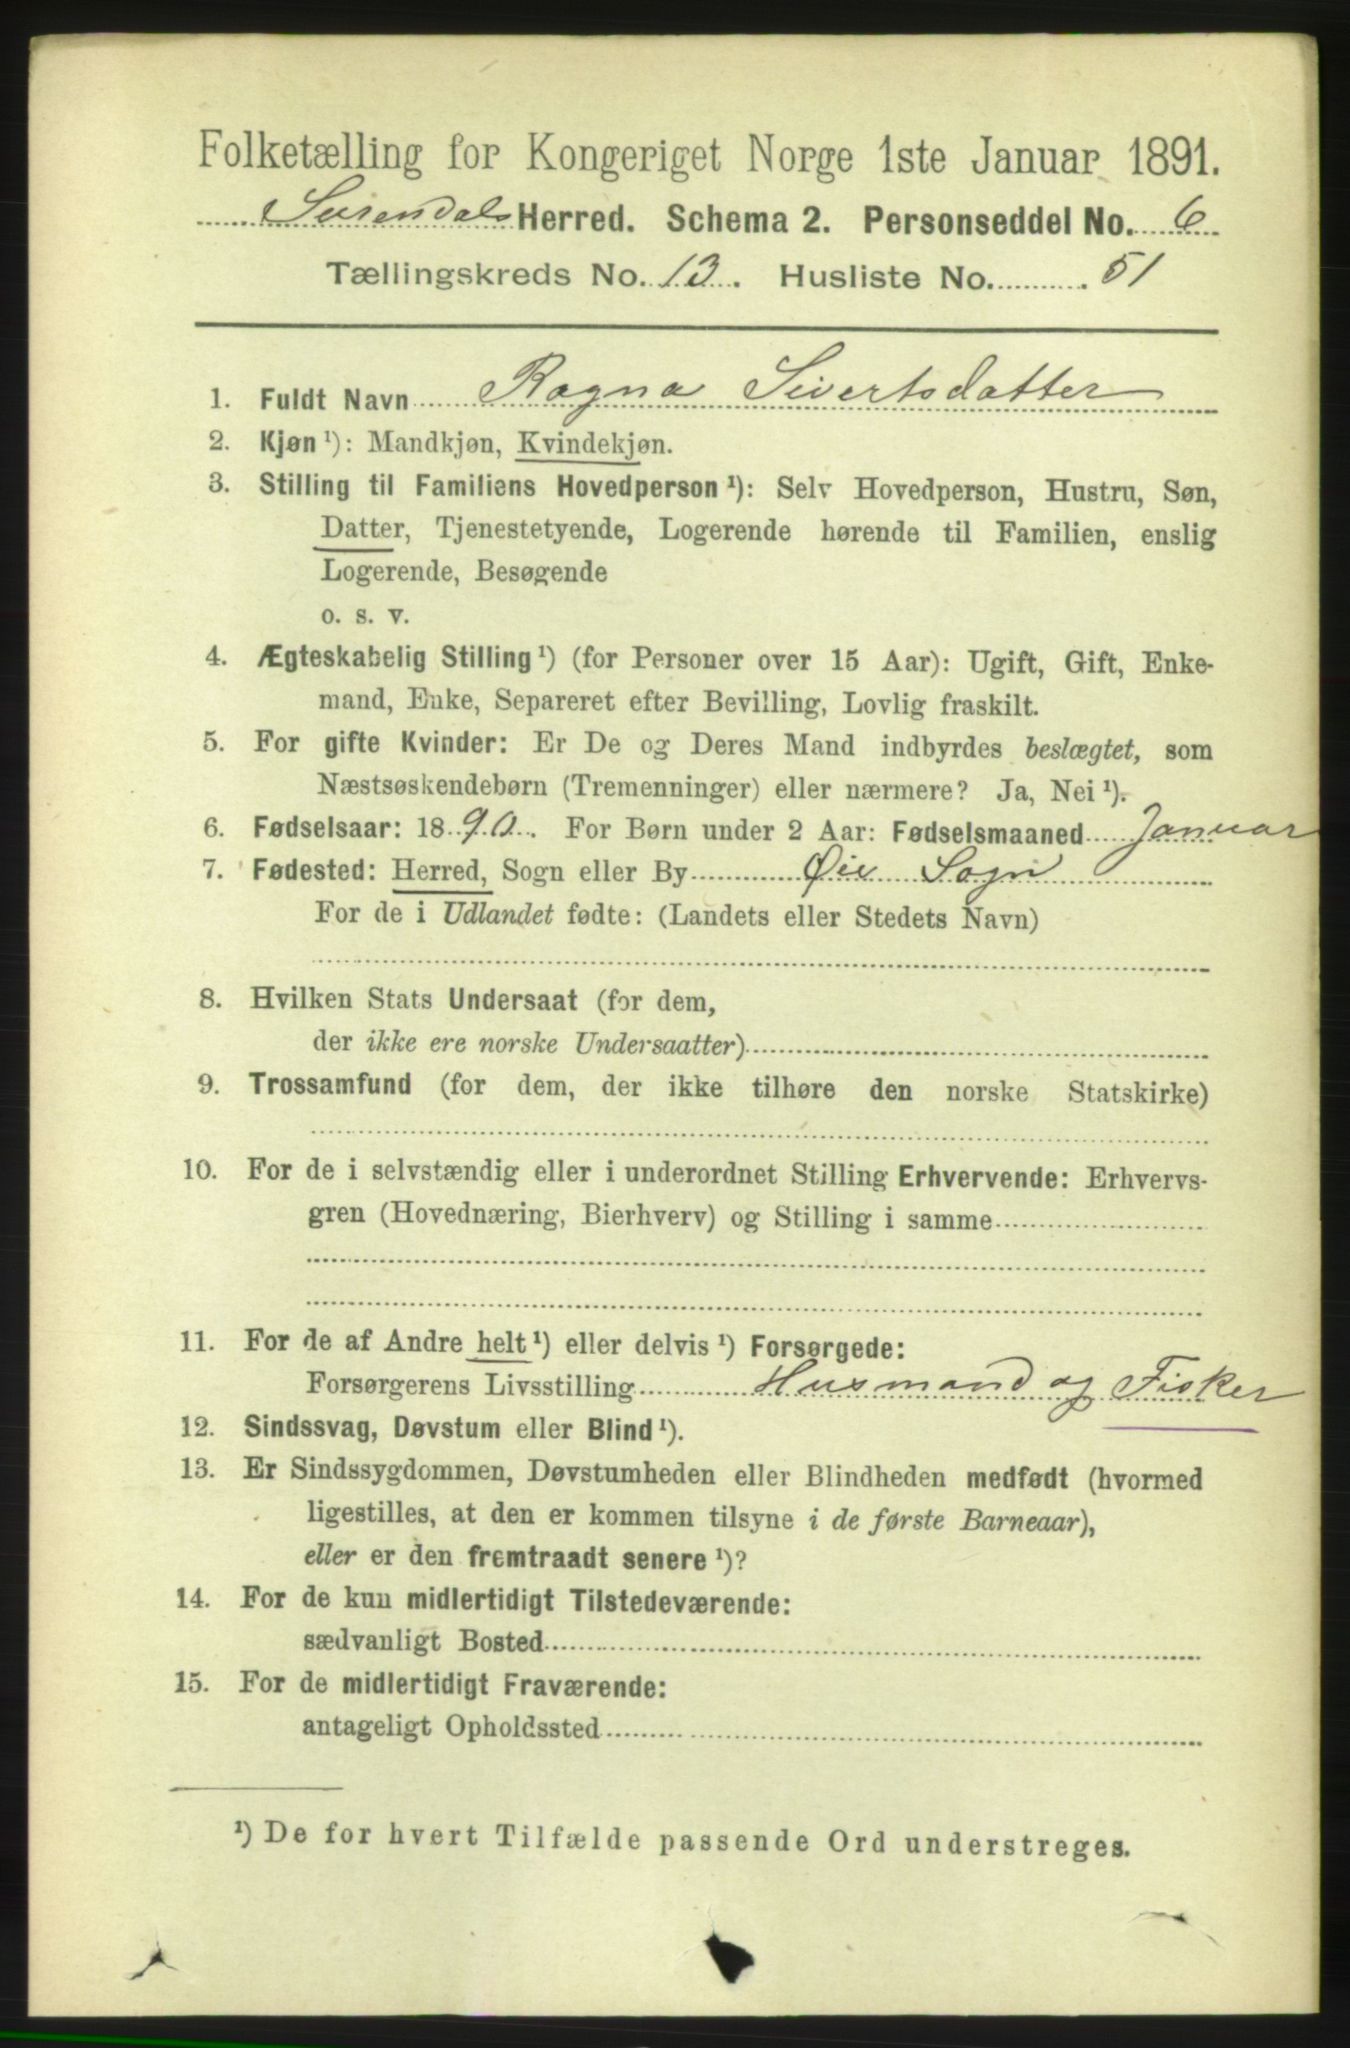 Folketælling for Kongeriget Norge 1ste Januar 1891.
Surendals Herred. Schema 2. Personseddel No. 6
Tællingskreds No. 13. Husliste No. 51
1. Fuldt Navn Ragna Sivertsdatter
2. Kjøn¹): Mandkjøn, Kvindekjøn.
3. Stilling til Familiens Hovedperson¹): Selv Hovedperson, Hustru, Søn,
Datter, Tjenestetyende, Logerende hørende til Familien, enslig
Logerende, Besøgende
o. s. v.
4. Ægteskabelig Stilling¹) (for Personer over 15 Aar): Ugift, Gift, Enke-
mand, Enke, Separeret efter Bevilling, Lovlig fraskilt.
5. For gifte Kvinder: Er De og Deres Mand indbyrdes beslægtet, som
Næstsøskendebørn (Tremenninger) eller nærmere? Ja, Nei¹).
6. Fødselsaar: 1890. For Børn under 2 Aar: Fødselsmaaned Januar
7. Fødested: Herred, Sogn eller By Øie Sogn
For de i Udlandet fødte: (Landets eller Stedets Navn)
8. Hvilken Stats Undersaat (for dem,
der ikke ere norske Undersaatter)
9. Trossamfund (for dem, der ikke tilhøre den norske Statskirke)
10. For de i selvstændig eller i underordnet Stilling Erhvervende: Erhvervs-
gren (Hovednæring, Bierhverv) og Stilling i samme
11. For de af Andre helt¹) eller delvis¹) Forsørgede:
Forsørgerens Livsstilling Husmand og Fisker
12. Sindssvag, Døvstum eller Blind¹).
13. Er Sindssygdommen, Døvstumheden eller Blindheden medfødt (hvormed
ligestilles, at den er kommen tilsyne i de første Barneaar),
eller er den fremtraadt senere¹)?
14. For de kun midlertidigt Tilstedeværende:
sædvanligt Bosted
15. For de midlertidigt Fraværende:
antageligt Opholdssted
¹) De for hvert Tilfælde passende Ord understreges.